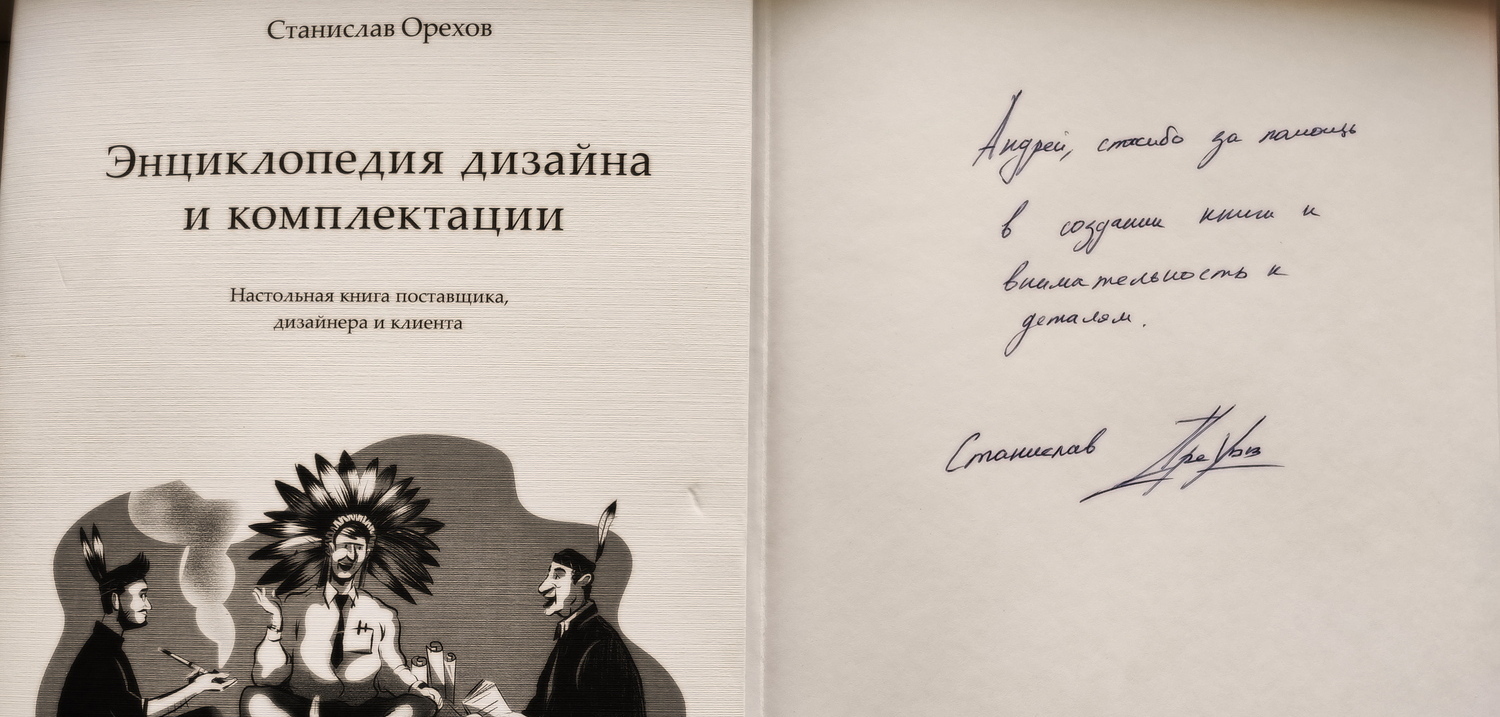 Станислав Орехов
Энциклопедия дизайна
и комплектации
Настольная книга поставщика,
дизайнера и клиента
Андрей, спасибо за помощь
в создании книги и
внимательность к
деталям.
Станислав